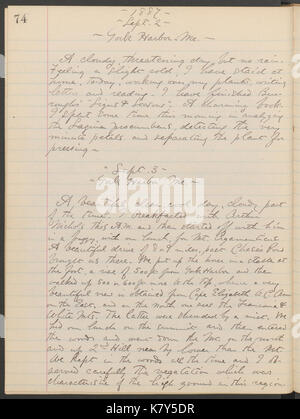 74
- 1887 -
- Sept. 2 -
- York Harbor, Me -
A cloudy, threatening day, but no rain.
Feeling a slight cold, I have staid at
home, today, working over my plants, writing
letters and reading. I have finished Bur-
roughs' "Signs & Seasons". A charming book.
I spent some time this morning in analyzing
the Sagina procumbens, detecting the very
minute petals and separating the plant for
pressing -
- Sept. 3 -
York Harbor Me -
A beautiful day, cool, day, cloudy part
of the time. I breakfasted with Arthur
Nichols this A.M. and then started off with him
in a buggy, with our lunch, for Mt. Agamenticus.
A beautiful drive of miles, past Chases Pond
brought us there. We put up the horse in a stable at
the foot, a rise of 500 ft from York Harbor and then
walked 500 more to the top, where a very
beautiful view is obtained from Cape Elizabeth to C. Ann
on the East, and on the North we saw the &
White Mts. The latter was obscured by a mist. We
had our lunch on the summit and then entered
the woods and went down the Mt. on the north
and up 2nd Hill, near by, lower than the Mt.
We kept in the woods all the time and I ob-
served carefully the vegetation which was
characteristic of the high ground in this region
alamy
Image ID: K7Y5DR
www.alamy.com